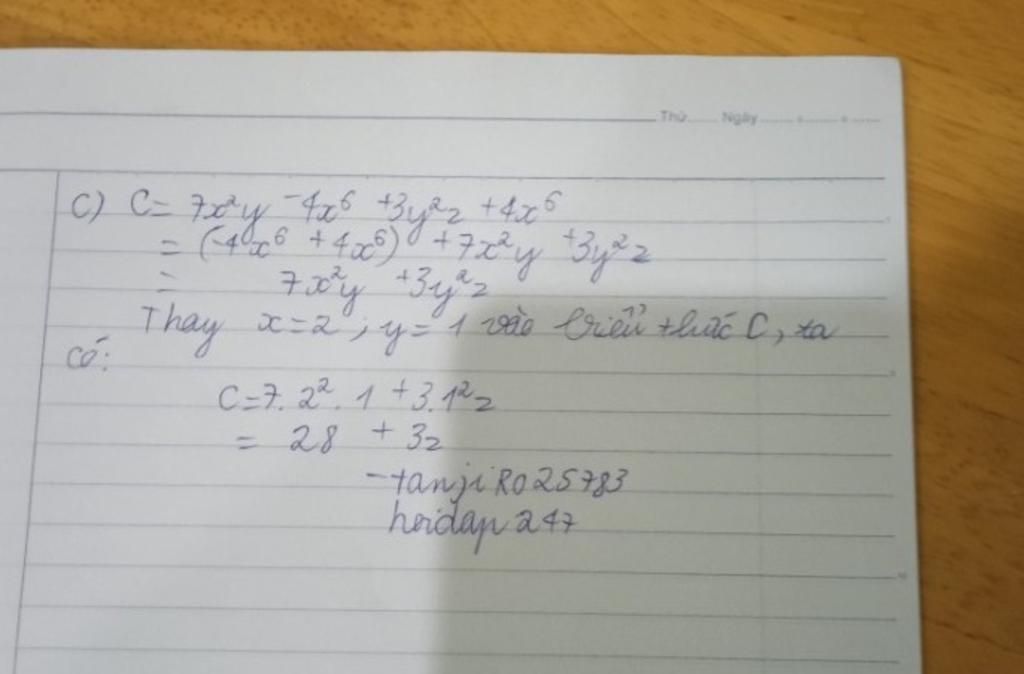 Thứ...... Ngày.......................
C) C= 7x²y -4x⁶ +3y²z +4x⁶
= (-4x⁶ +4x⁶) +7x²y +3y²z
= 7x²y +3y²z
Thay x=2 ; y= 1 vào biểu thức C, ta
có:
C=7. 2². 1 +3.1²z
= 28 + 3z
-tanjiRO25783
hoidap247